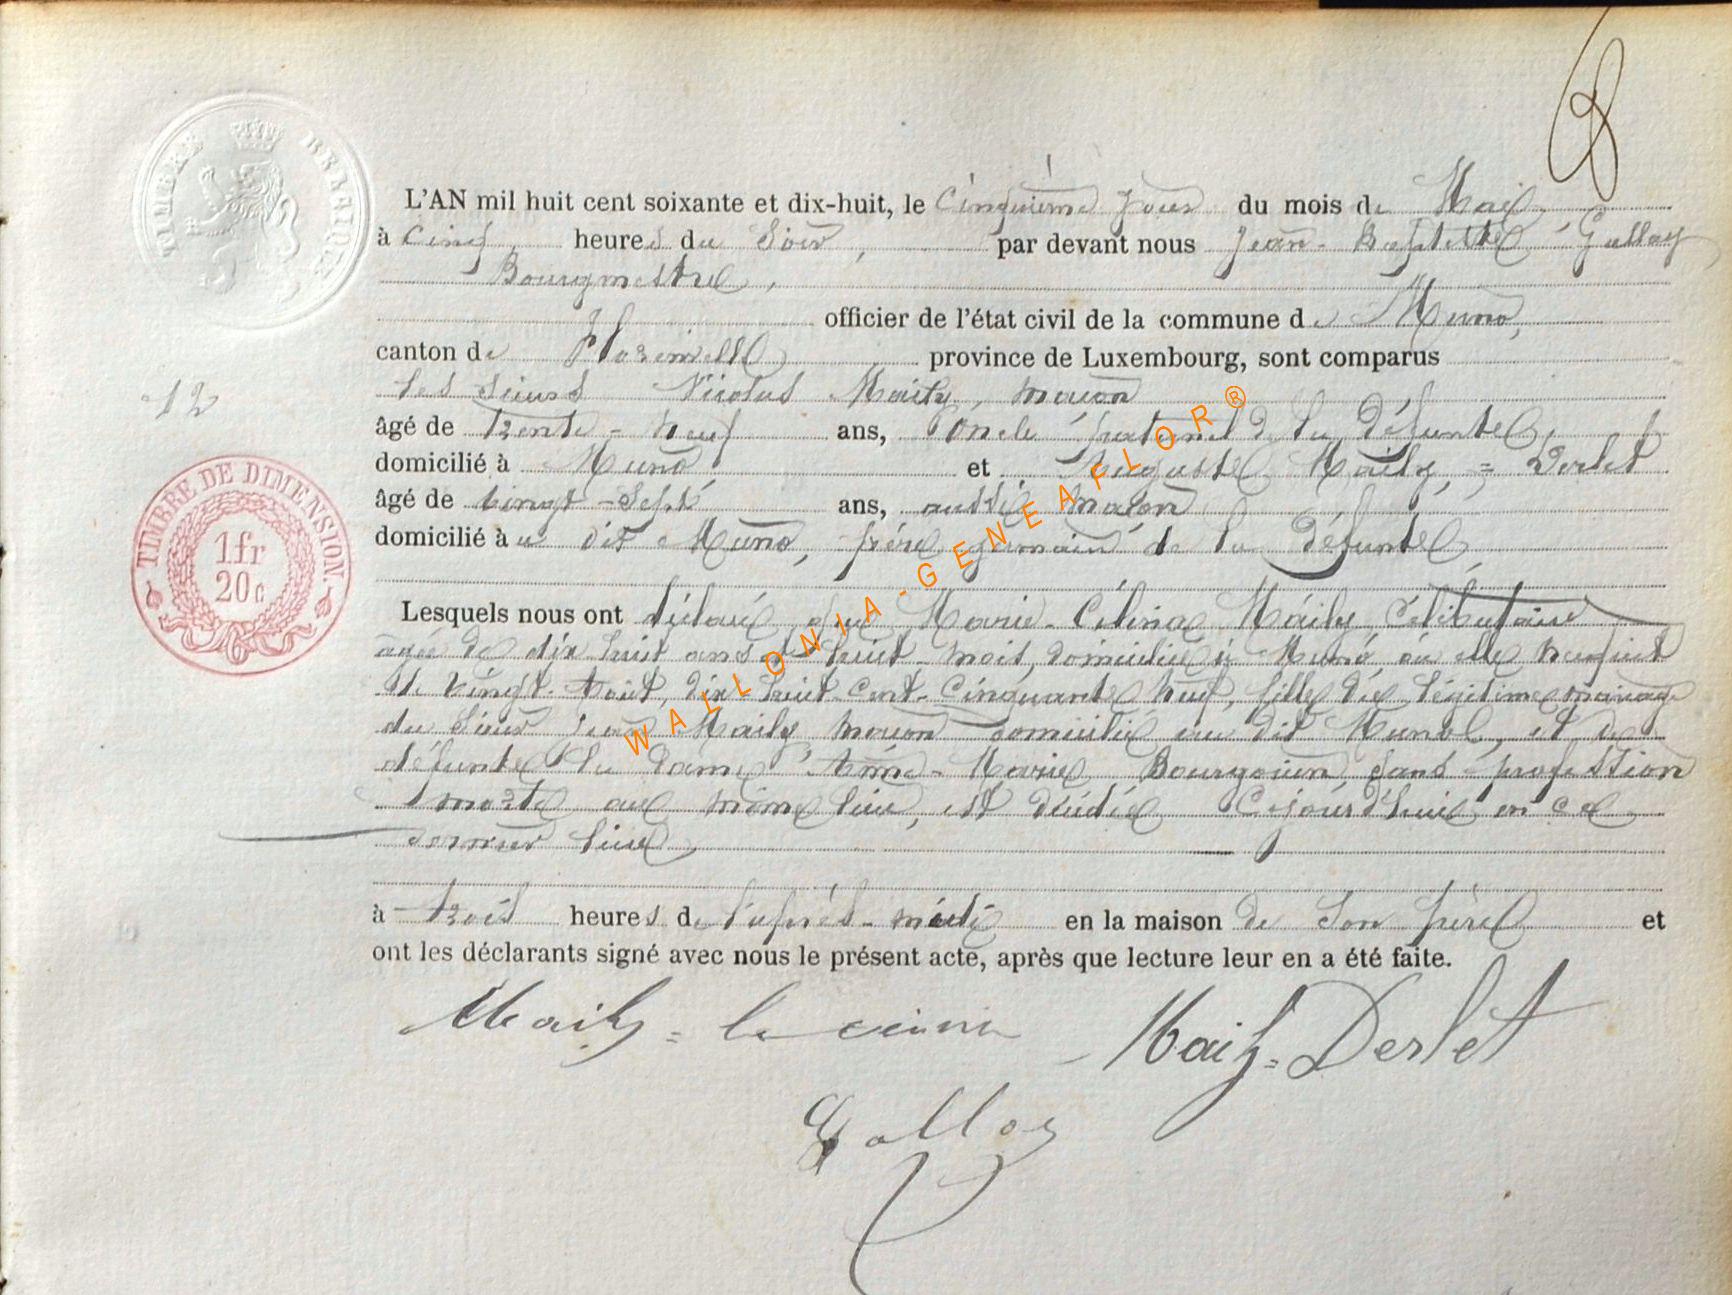 TIMBRE BELGIQUE
L'AN mil huit cent soixante et dix-huit, le Cinquième jour du mois de Mai,
à Cinq heures du Soir, par devant nous Jean-Baptiste Galloy
Bourgmestre,
officier de l'état civil de la commune de Muno,
canton de Florenville province de Luxembourg, sont comparus
12
les sieurs Nicolas Maily, maçon
âgé de Trente-neuf ans, oncle paternel de la défunte,
domicilié à Muno et Auguste Maily = Derlet
âgé de vingt-sept ans, aussi maçon
domicilié au dit Muno, frère germain de la défunte,
TIMBRE DE DIMENSION.
1 fr
20 c
Lesquels nous ont déclaré que Marie-Célina Maily, célibataire
agée de dix huit ans et huit mois, domiciliée à Muno, où elle naquit
le vingt Août, dix-huit-cent-cinquante neuf, fille du légitime mariage
du Sieur Jean Maily maçon domicilié au dit Muno, et de
défunte la dame Anne-Marie Bourguignon sans profession
morte au même lieu, est décédée Cejourd'hui en ce
dernier lieu
à trois heures de l'après-midi en la maison de Son père et
ont les déclarants signé avec nous le présent acte, après que lecture leur en a été faite.
Maily = Maily = Derlet
Galloy
WALLONIA-GENEAFLOR®